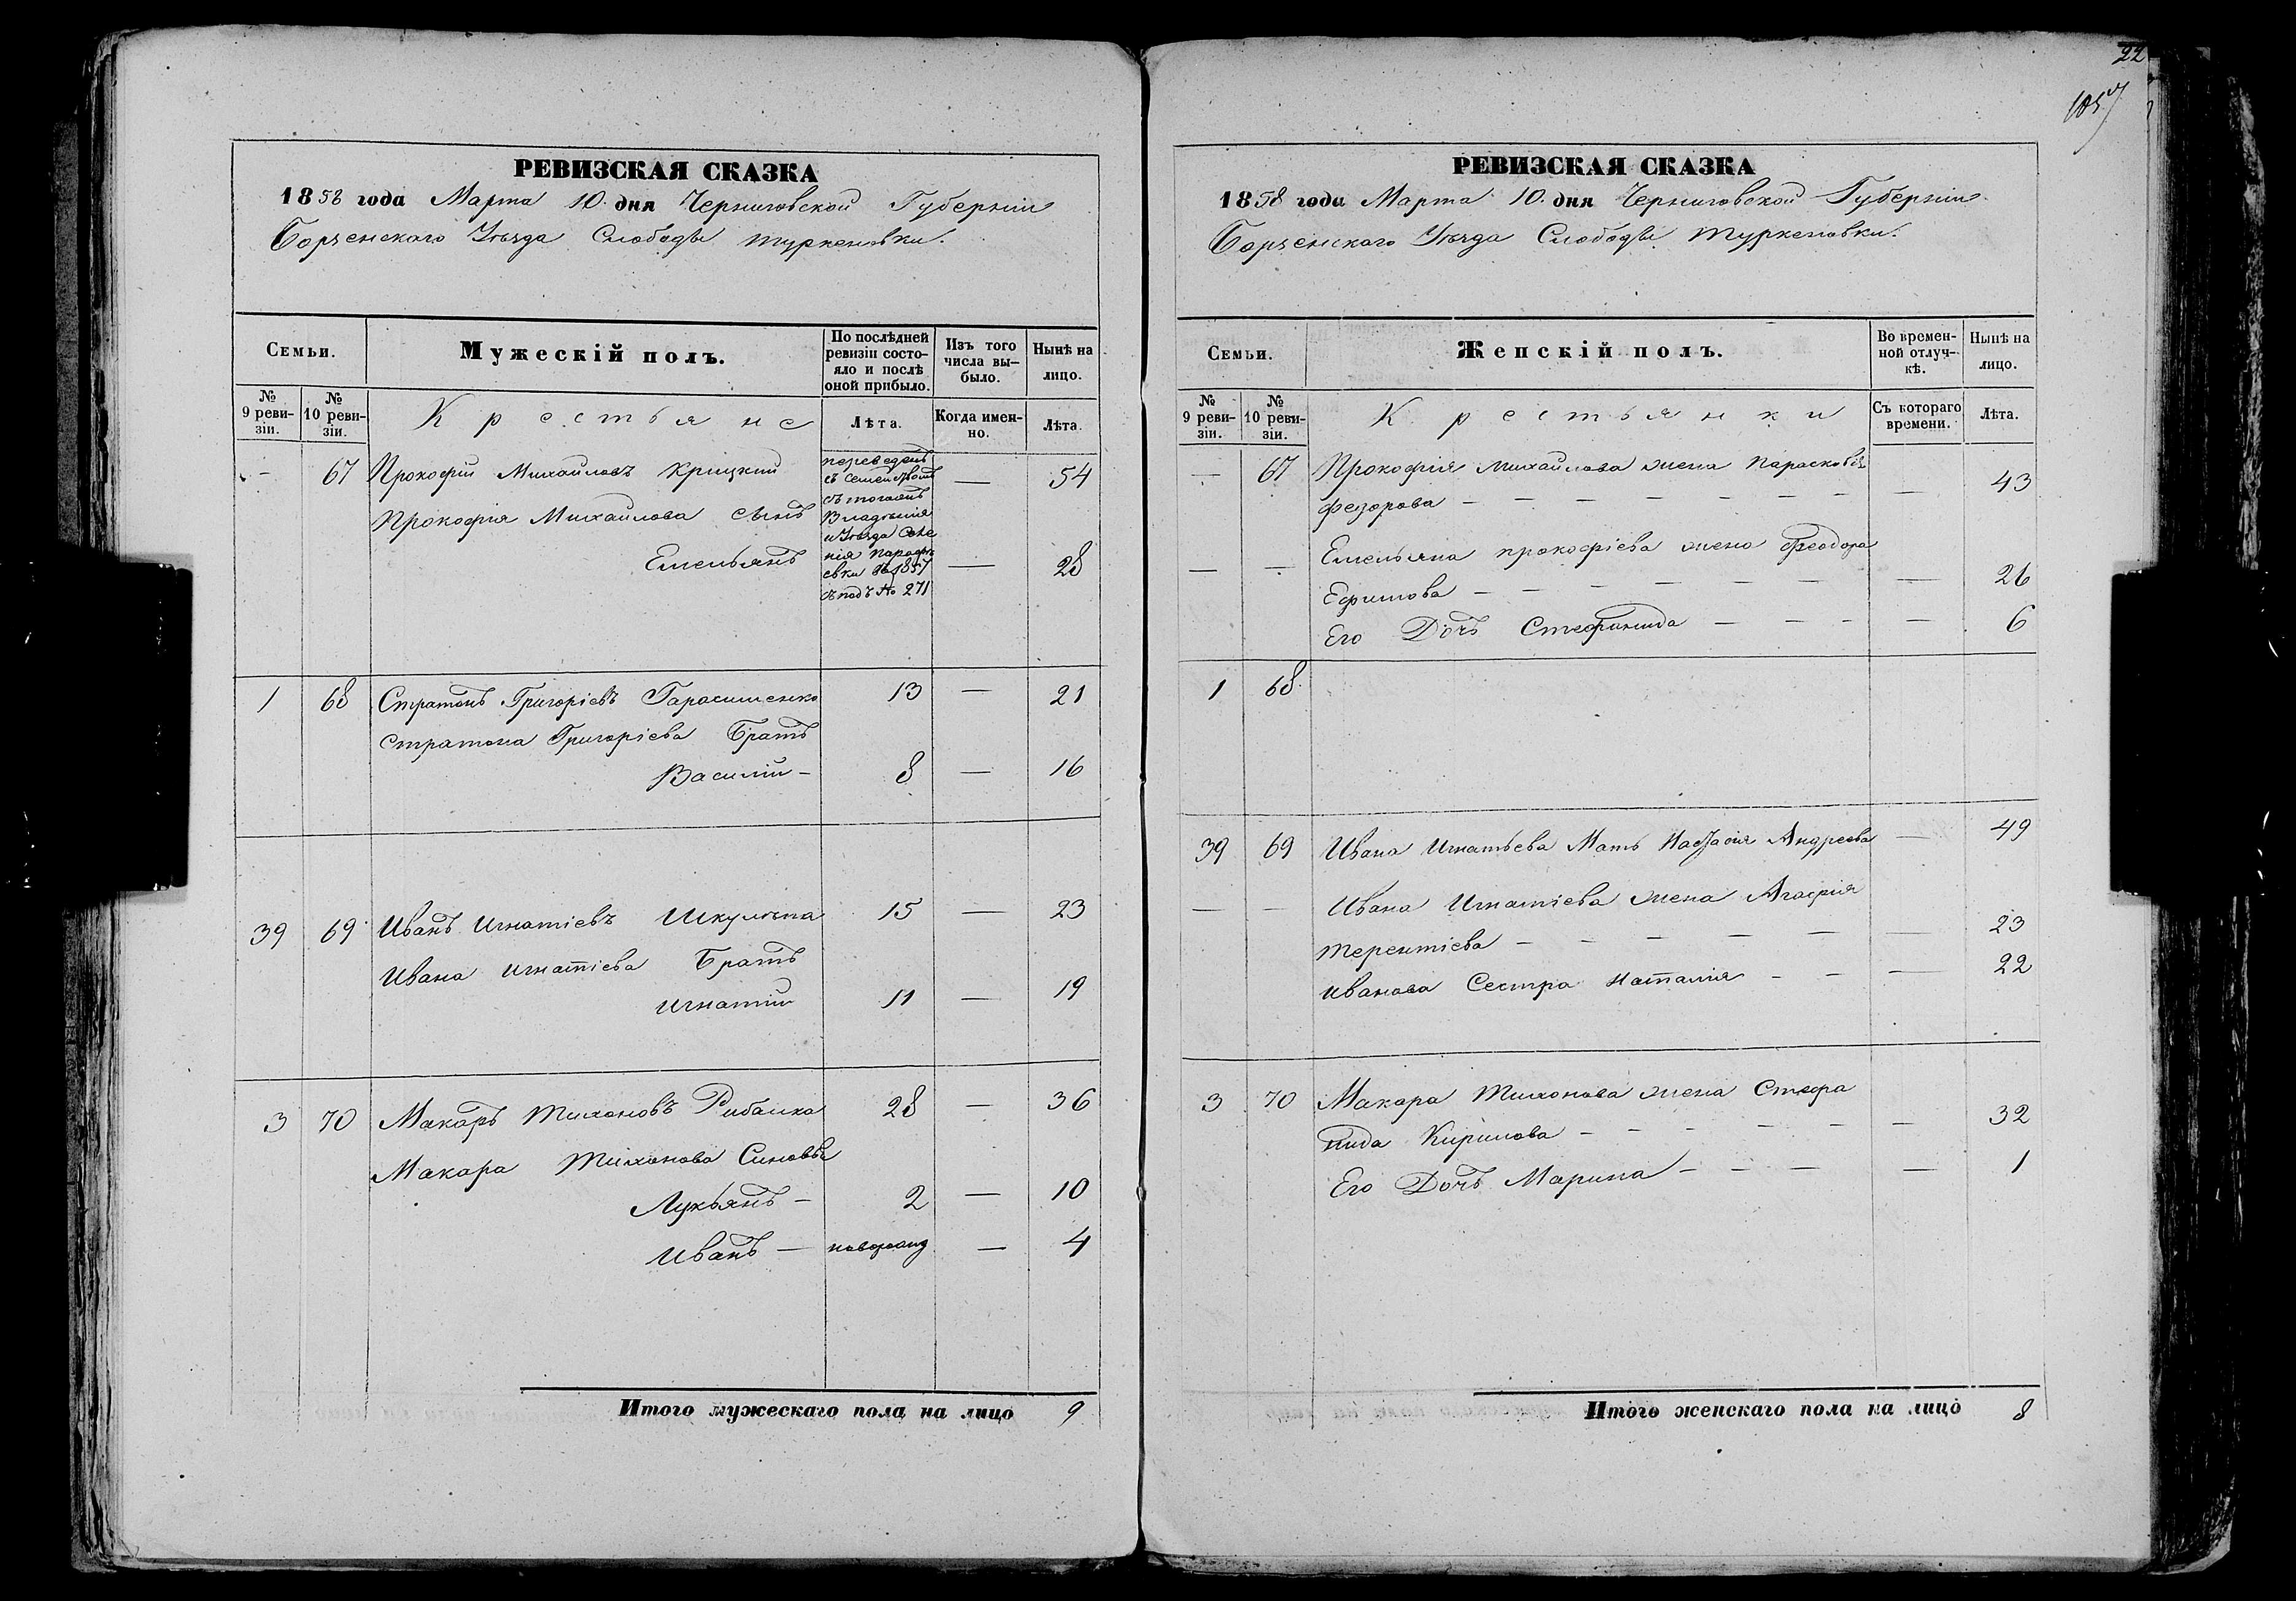 РЕВИЗСКАЯ СКАЗКА
1858 года Марта 10 дня Черниговской Губерніи
Борзенскаго Уѣзда Слободы Туркеновки.
Семьи.
Мужескій полъ.
По послѣдней ревизіи состояло и послѣ оной прибыло.
Изъ того числа выбыло.
Нынѣ на лицо.
№ 9 ревизіи.
№ 10 ревизіи.
Крестьяне
Лѣта.
Когда именно.
Лѣта.
— 67 Прокофій Михайловъ Крицкий — 54
переведенъ
съ семействомъ
Прокофія Михайлова сынъ
Владѣнія
и Уѣзда Селе
нія Парафі
евки въ 1857
Емельянъ — 28
подъ № 271
1 68 Стратонъ Григоріевъ Гарасименко 13 — 21
Стратона Григоріева Братъ
Василій — 8 — 16
39 69 Иванъ Игнатіевъ Шкулѣпа 15 — 23
Ивана Игнатіева Братъ
Игнатій 11 — 19
3 70 Макаръ Тихоновъ Рибалка 28 — 36
Макара Тихонова Синовьѣ
Лукьянъ — 2 — 10
Иванъ — новорожд — 4
Итого мужескаго пола на лицо 9
22
РЕВИЗСКАЯ СКАЗКА
1858 года Марта 10 дня Черниговской Губерніи
Борзенскаго Уѣзда Слободы Туркеновки.
Семьи.
Женскій полъ.
Во временной отлучкѣ.
Нынѣ на лицо.
№ 9 ревизіи.
№ 10 ревизіи.
Крестьянки
Съ котораго времени.
Лѣта.
— 67 Прокофія Михайлова жена Парасковія
Федорова — — — — — — — — 43
— — Емельяна Прокофіева жена Феодора
Ефимова — — — — — — — 26
Его Дочь Стефанида — — — — 6
1 68
39 69 Ивана Игнатьева Мать Настасія Андреева — 49
— — Ивана Игнатіева жена Агафія
Терентіева — — — — — — 23
Иванова Сестра Наталія — — — 22
3 70 Макара Тихонова жена Стефа
нида Кирилова — — — — — — 32
Его Дочь Марина — — — — 1
Итого женскаго пола на лицо 8